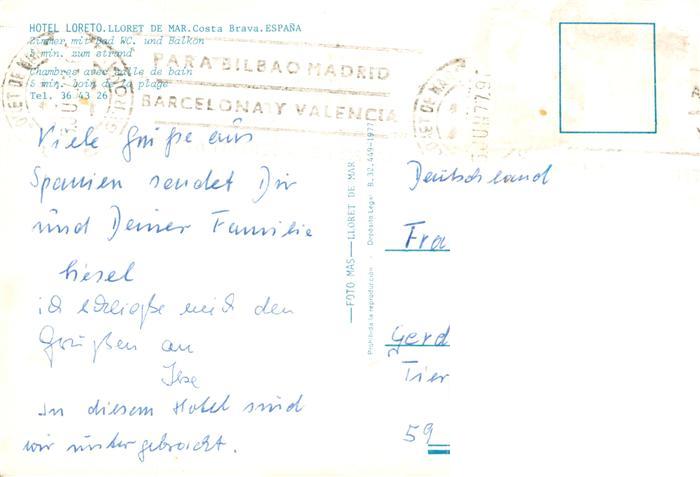 HOTEL LORETO.LLORET DE MAR.Costa Brava.ESPAÑA
Zimmer mit Bad WC. und Balkon
5 min. zum strand
Chambres avec salle de bain
5 min. loin de la plage
Tel. 36 43 26
PARA BILBAO MADRID
BARCELONA Y VALENCIA
Viele Grüße aus
Spanien sendet Dir
und Deiner Familie
Liesel
ich schließe mich den
Grüßen an
Ilse
In diesem Hotel sind
wir untergebracht.
FOTO MAS—LLORET DE MAR
Prohibida la reproducción - Depósito Legal B. 32.449-1977
Deutschland
Fra
Gerd
Tier
59